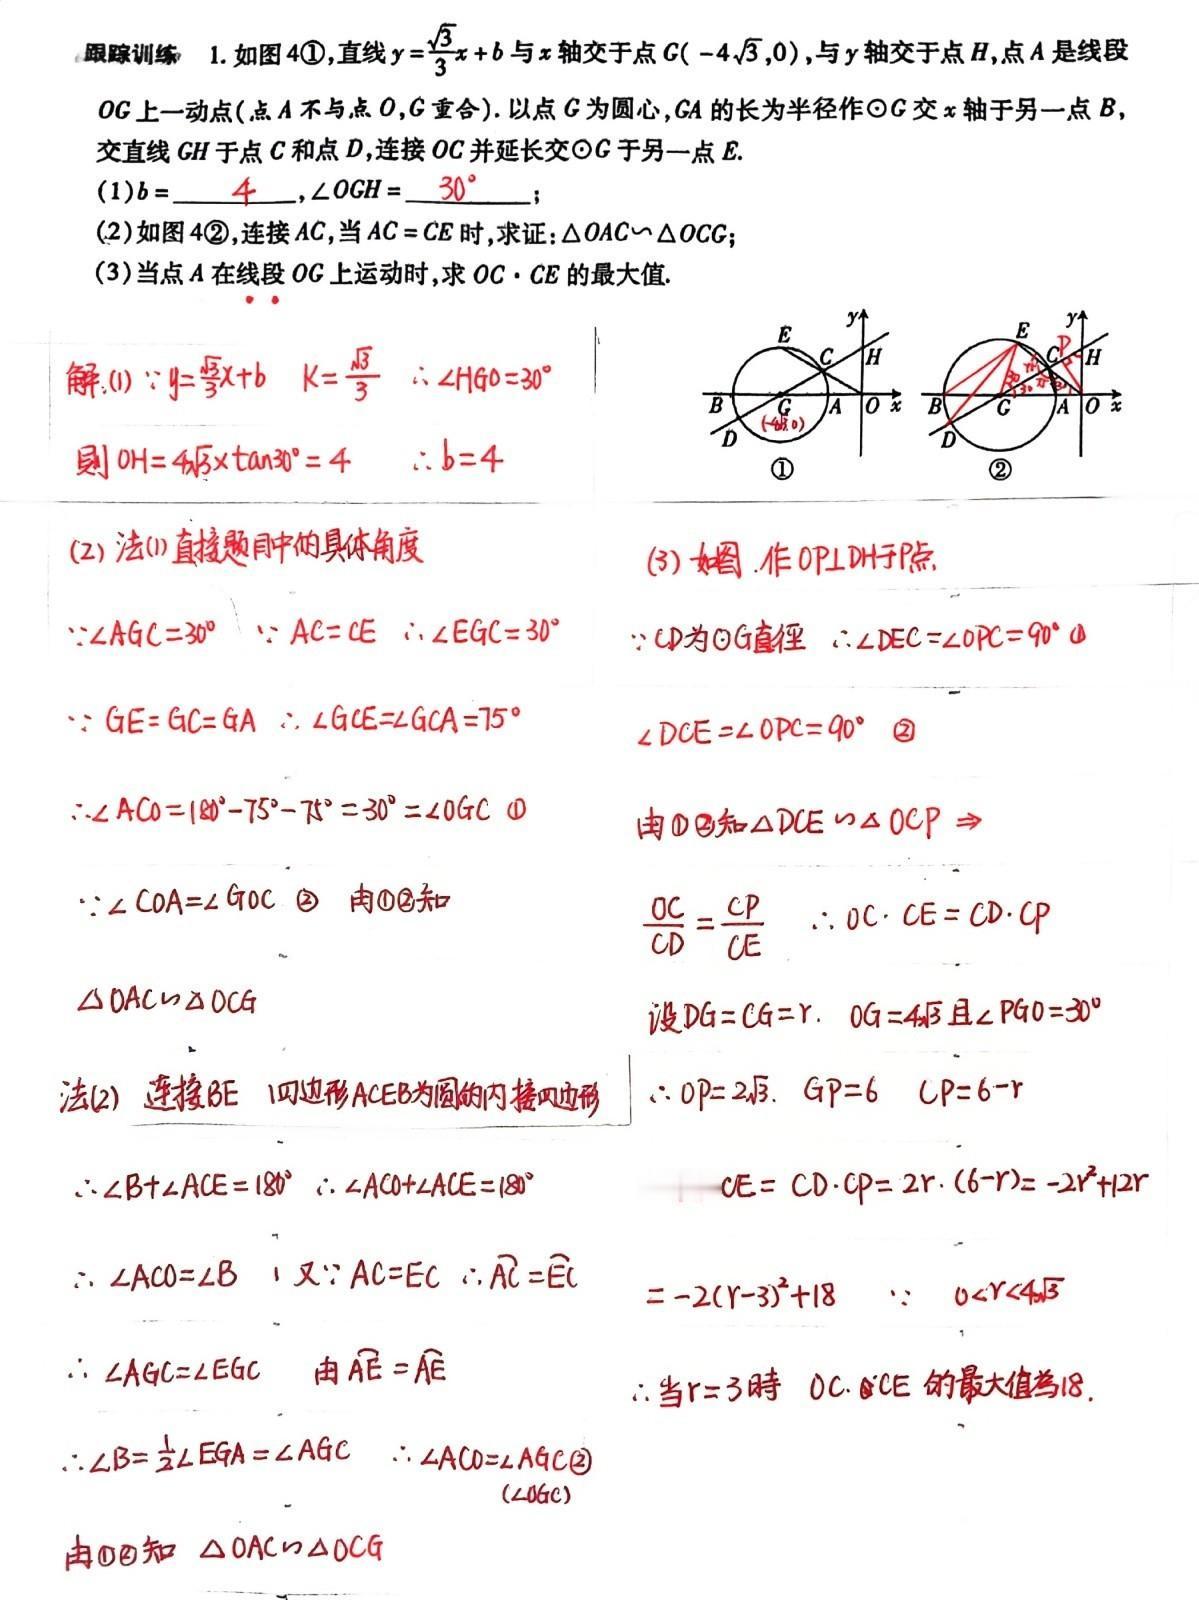 跟踪训练 1. 如图4①,直线y=√3/3x+b与x轴交于点G(-4√3,0),与y轴交于点H,点A是线段
OG上一动点(点A不与点O,G重合).以点G为圆心,GA的长为半径作⊙G交x轴于另一点B,
交直线GH于点C和点D,连接OC并延长交⊙G于另一点E.
(1)b=4,∠OGH=30°;
(2)如图4②,连接AC,当AC=CE时,求证:△OAC∽△OCG;
(3)当点A在线段OG上运动时,求OC·CE的最大值.
E y H C B G A O x D (-4√3,0) ①
E y P C H B G A O x D 30 30° ②
解:(1) ∵y=√3/3x+b K=√3/3 ∴∠HGO=30°
則OH=4√3×tan30°=4 ∴b=4
(2) 法(1) 直接题目中的具体角度
∵∠AGC=30° ∵AC=CE ∴∠EGC=30°
∵GE=GC=GA ∴∠GCE=∠GCA=75°
∴∠ACO=180°-75°-75°=30°=∠OGC ①
∵∠COA=∠GOC ② 由①②知
△OAC∽△OCG
法(2) 连接BE 四边形ACEB为圆的内接四边形
∴∠B+∠ACE=180° ∴∠ACO+∠ACE=180°
∴∠ACO=∠B 又∵AC=EC ∴⌒AC=⌒EC
∴∠AGC=∠EGC 由⌒AE=⌒AE
∴∠B=1/2∠EGA=∠AGC ∴∠ACO=∠AGC②
(∠OGC)
由①②知 △OAC∽△OCG
(3) 如图.作OP⊥DH于P点
∵CD为⊙G直径 ∴∠DEC=∠OPC=90° ①
∠DCE=∠OPC=90° ②
由①②知△DCE∽△OCP ⇒
OC/CD=CP/CE ∴OC·CE=CD·CP
设DG=CG=r. OG=4√3且∠PGO=30°
∴OP=2√3. GP=6 CP=6-r
CE=CD·CP=2r·(6-r)=-2r²+12r
=-2(r-3)²+18 ∵ 0<r<4√3
∴当r=3時 OC·CE的最大值為18.